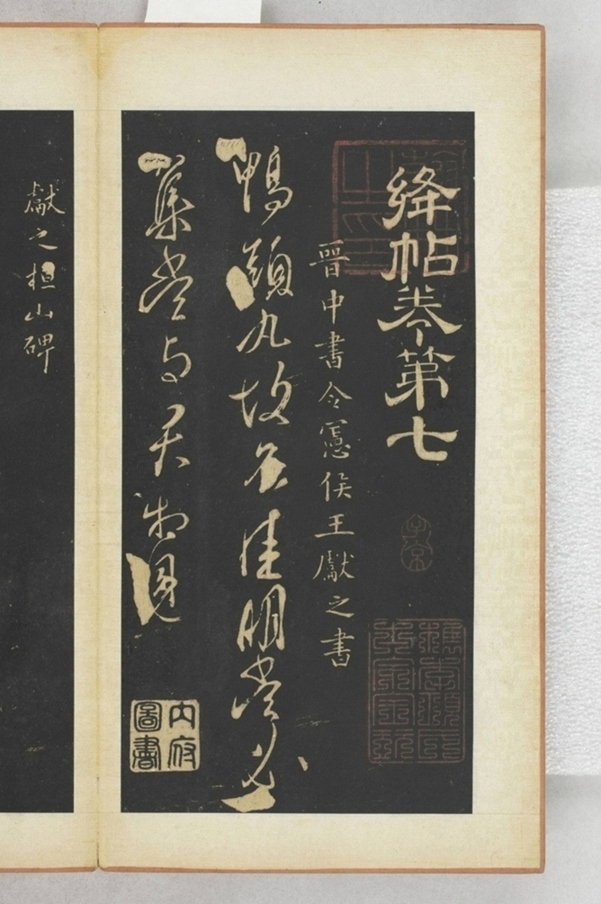 絳帖卷第七
晉中書令憲侯王獻之書
鴨頭丸故不佳明當必
集當与君相見
內府圖書
獻之桓山碑